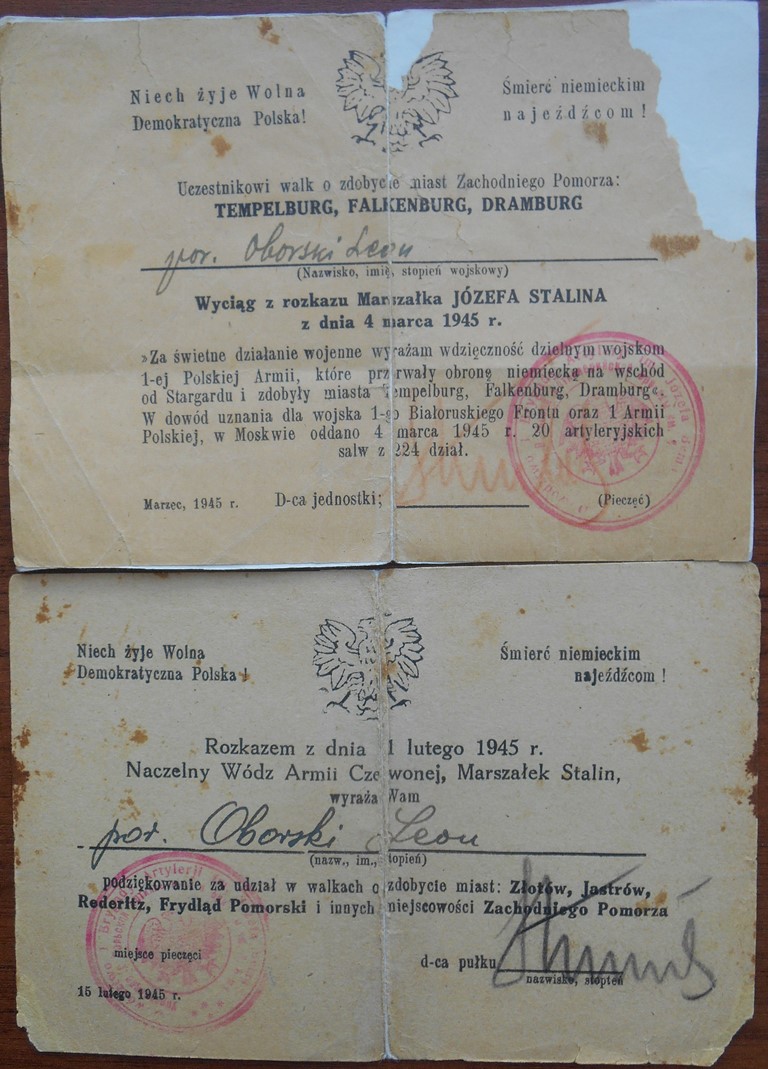 Niech żyje Wolna
Demokratyczna Polska!
Śmierć niemieckim
najeźdźcom!
Uczestnikowi walk o zdobycie miast Zachodniego Pomorza:
TEMPELBURG, FALKENBURG, DRAMBURG
por. Oborski Leon
(Nazwisko, imię, stopień wojskowy)
Wyciąg z rozkazu Marszałka JÓZEFA STALINA
z dnia 4 marca 1945 r.
»Za świetne działanie wojenne wyrażam wdzięczność dzielnym wojskom
1-ej Polskiej Armii, które przerwały obronę niemiecką na wschód
od Stargardu i zdobyły miasta Tempelburg, Falkenburg, Dramburg«.
W dowód uznania dla wojska 1-go Białoruskiego Frontu oraz 1 Armii
Polskiej, w Moskwie oddano 4 marca 1945 r. 20 artyleryjskich
salw z 224 dział.
Marzec, 1945 r.
D-ca jednostki;
(Pieczęć)
Niech żyje Wolna
Demokratyczna Polska!
Śmierć niemieckim
najeźdźcom!
Rozkazem z dnia 1 lutego 1945 r.
Naczelny Wódz Armii Czerwonej, Marszałek Stalin,
wyraża Wam
por. Oborski Leon
(nazw., im., stopień)
podziękowanie za udział w walkach o zdobycie miast: Złotów, Jastrów,
Rederitz, Frydląd Pomorski i innych miejscowości Zachodniego Pomorza
miejsce pieczęci
d-ca pułku
nazwisko, stopień
15 lutego 1945 r.